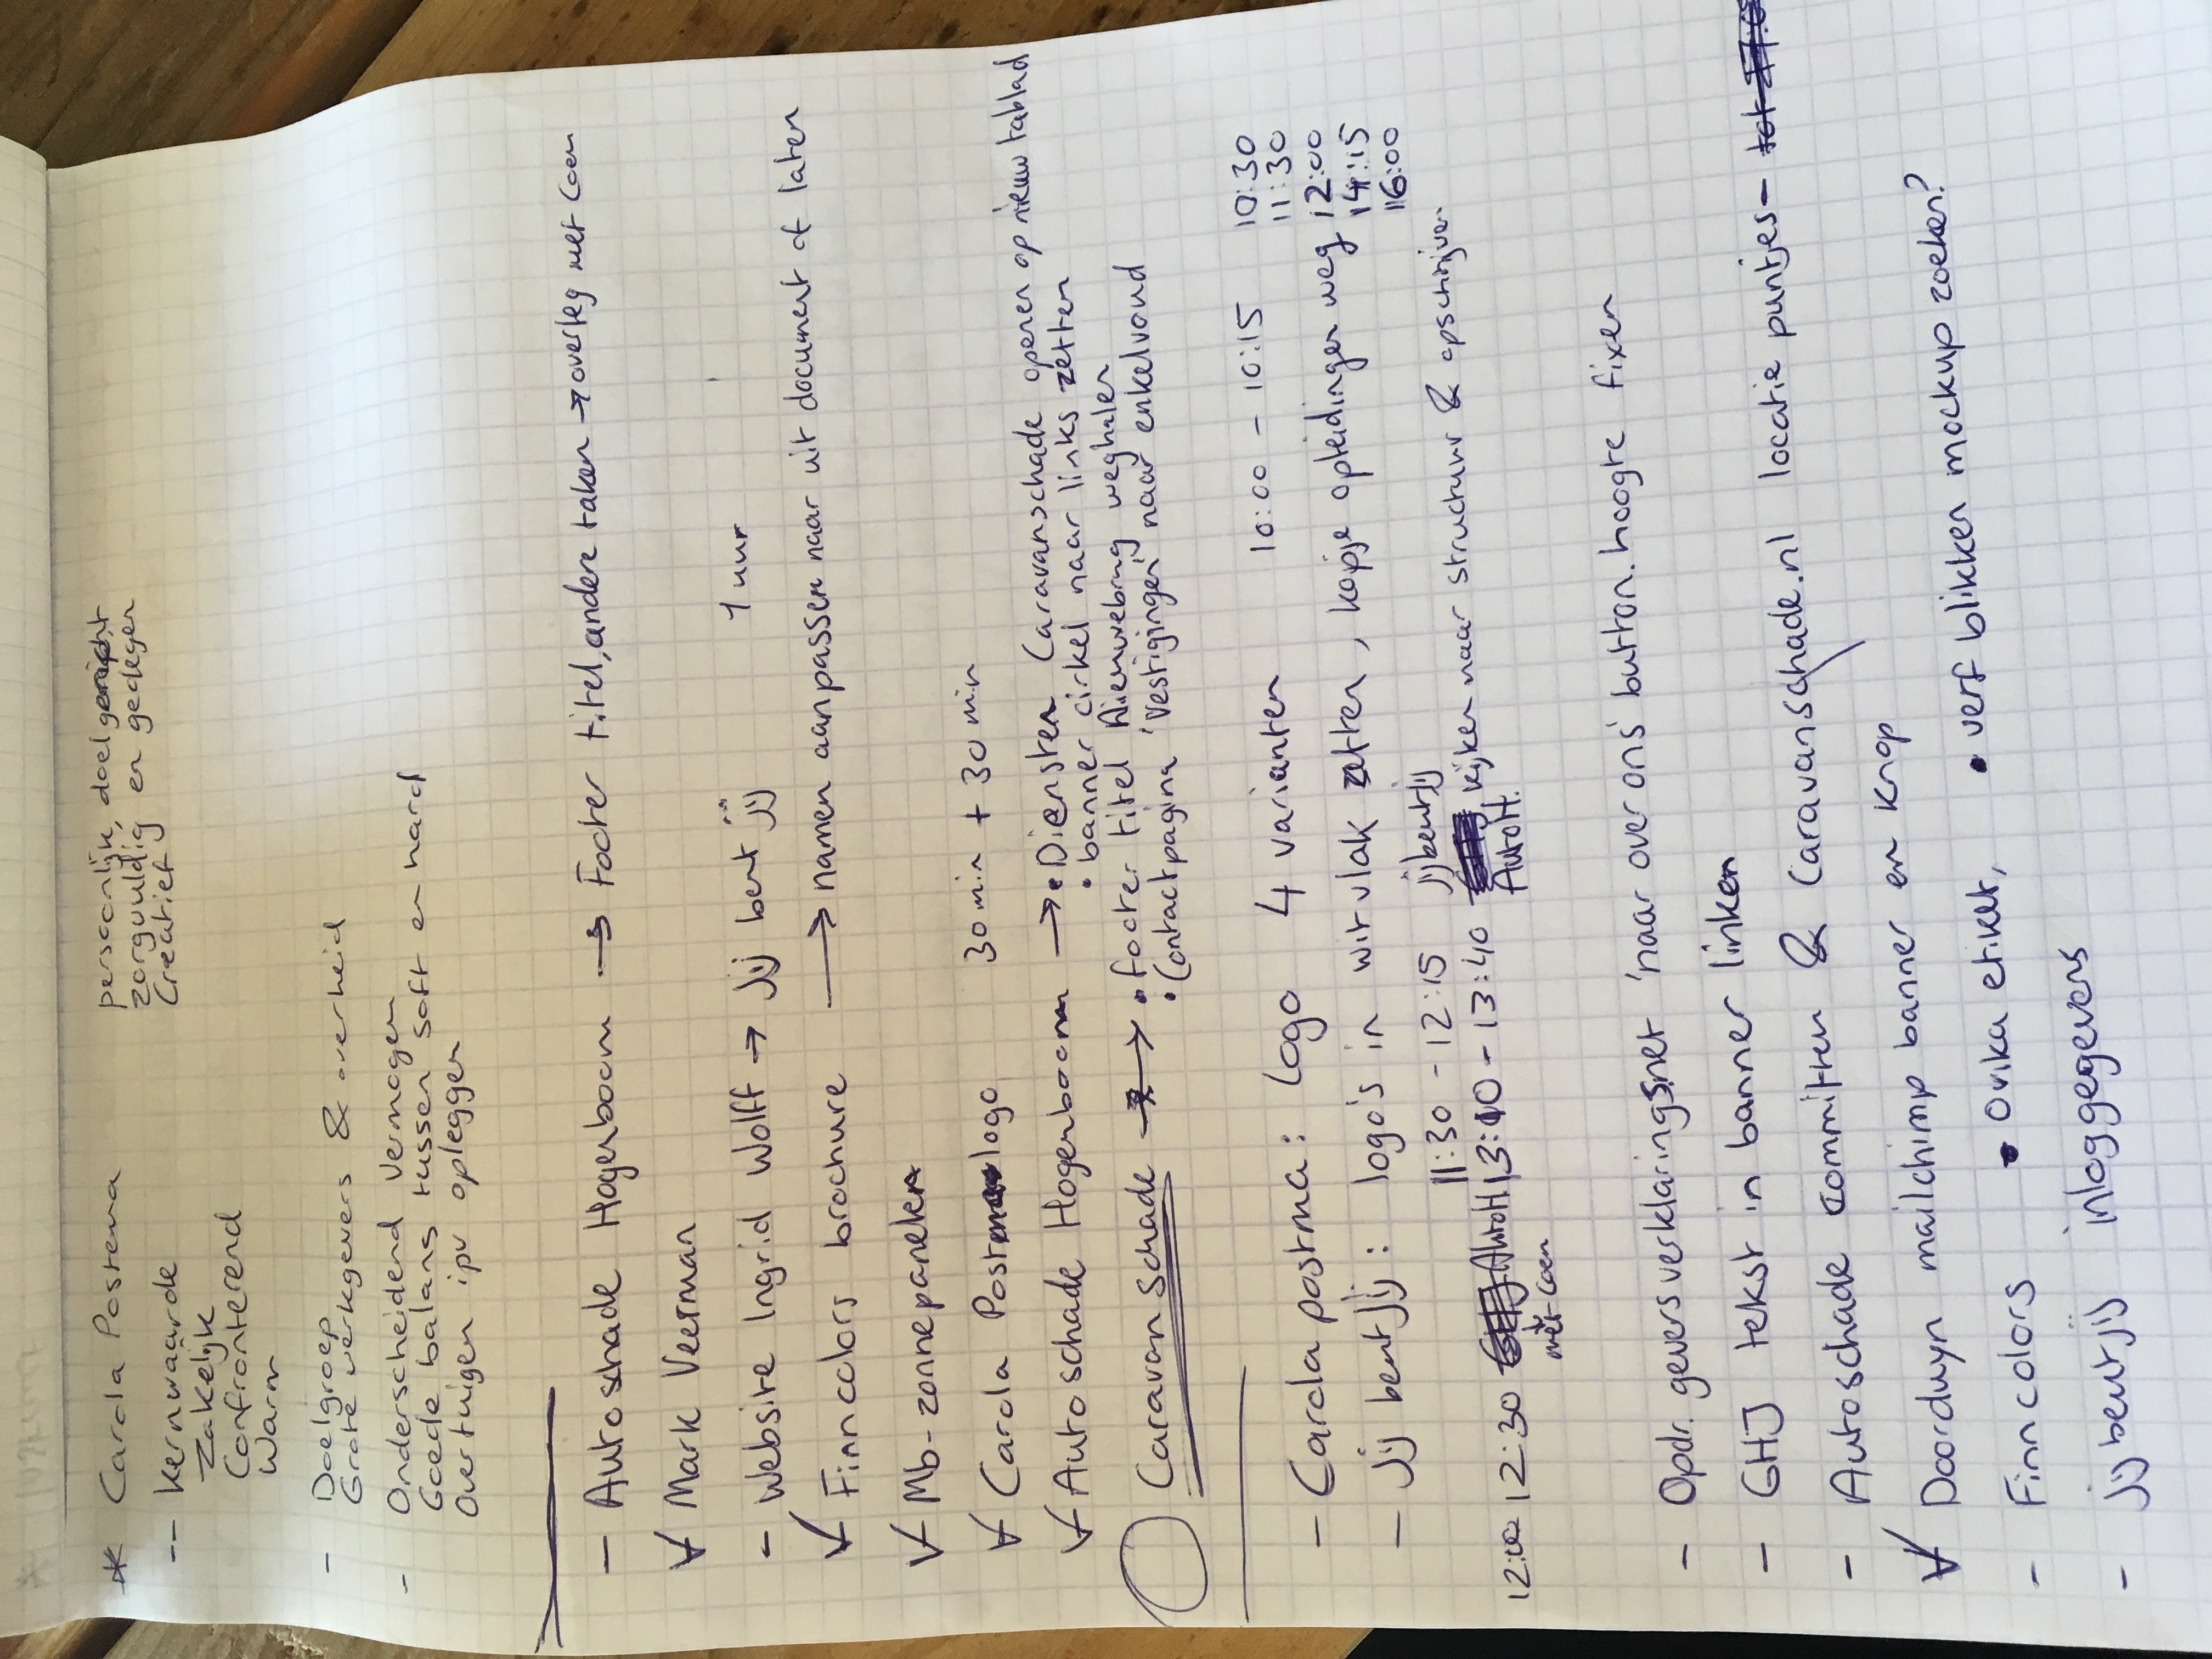 * Carola Postema
persoonlijk, doelgericht
zorgvuldig en gedegen
Creatief
-- Kernwaarde
Zakelijk
Confronterend
Warm
- Doelgroep
Grote werkgevers & overheid
- Onderscheidend Vermogen
Goede balans tussen soft en hard
Overtuigen ipv opleggen
- Autoschade Hogenboom → Footer titel, andere taken → overleg met Coen
V Mark Veerman
- Website Ingrid Wolff → JIJ bent JIJ 1 uur
V Finncolors brochure → namen aanpassen naar uit document of laten
V Mb-zonnepanelen
V Carola Postma logo 30 min + 30 min
V Autoschade Hogenboom → • Diensten Caravanschade openen op nieuw tablad
• banner cirkel naar links zetten
Caravanschade → • footer titel Nieuwebrug weghalen
• Contactpagina 'Vestigingen' naar enkelvoud
- Carola postma: Logo 4 varianten 10:00 - 10:15 10:30
11:30
- JIJ bent JIJ: logo's in wit vlak zetten, kopje opleidingen weg 12:00
14:15
16:00
11:30 - 12:15 JijbentJij
12:00 12:30 AutoH 13:10 - 13:40 kijken naar structuur & opschrijven
met Coen AutoH.
- Opdr. geversverklaringsnet 'naar over ons' button.hoogte fixen
- GHJ tekst in banner linken
- Autoschade committen & Caravanschade.nl locatie puntjes-
V Doorduyn mailchimp banner en knop
- Finncolors • Ovika etiket, • verf blikken mockup zoeken?
- JIJ bent JIJ inloggegevens